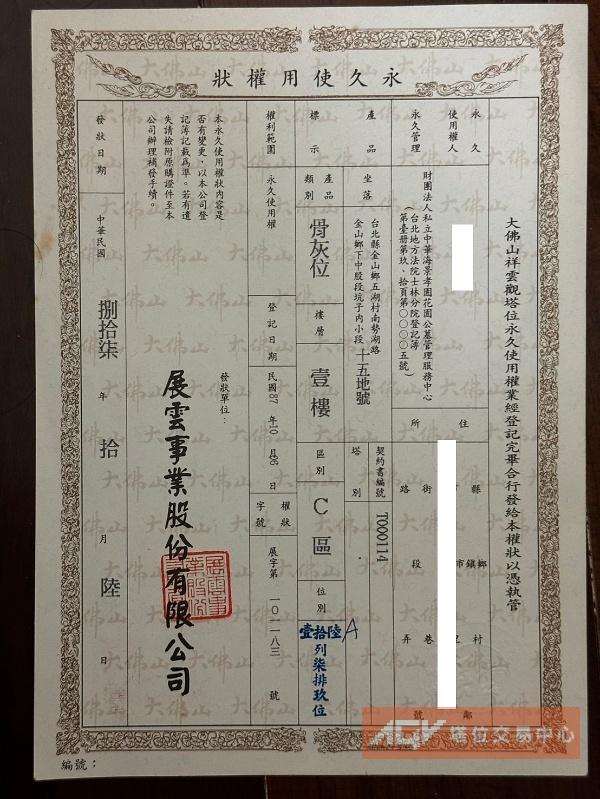 永久使用權狀
大佛山祥雲觀塔位永久使用權業經登記完畢合行發給本權狀以憑執管
永久
使用權人
住所
縣
市鎮鄉
村
里
鄰
街
路
段
巷
弄
號
永久管理
財團法人私立中華海景孝園花園公墓管理服務中心
(台北地方法院士林分院登記簿
第臺冊第玖、拾頁第○○○五號)
產品
標示
坐落
台北縣金山鄉五湖村南勢湖路
金山鄉下中股段坑子內小段
十五地號
契約書編號
T000114
塔別
產品
類別
骨灰位
樓層
壹樓
區別
C區
位別
陸拾壹列柒排玖位
A
權利範圍
永久使用權
登記日期
民國87年10月06日
權狀
字號
展字第一○一一八三號
本永久使用權狀內容是
否有變更,以本公司登
記簿記載為準。若有遺
失請檢附原購證件至本
公司辦理補發手續。
發狀單位:
展雲事業股份有限公司
發狀日期
中華民國捌拾柒年拾月陸日
編號:
塔位交易中心